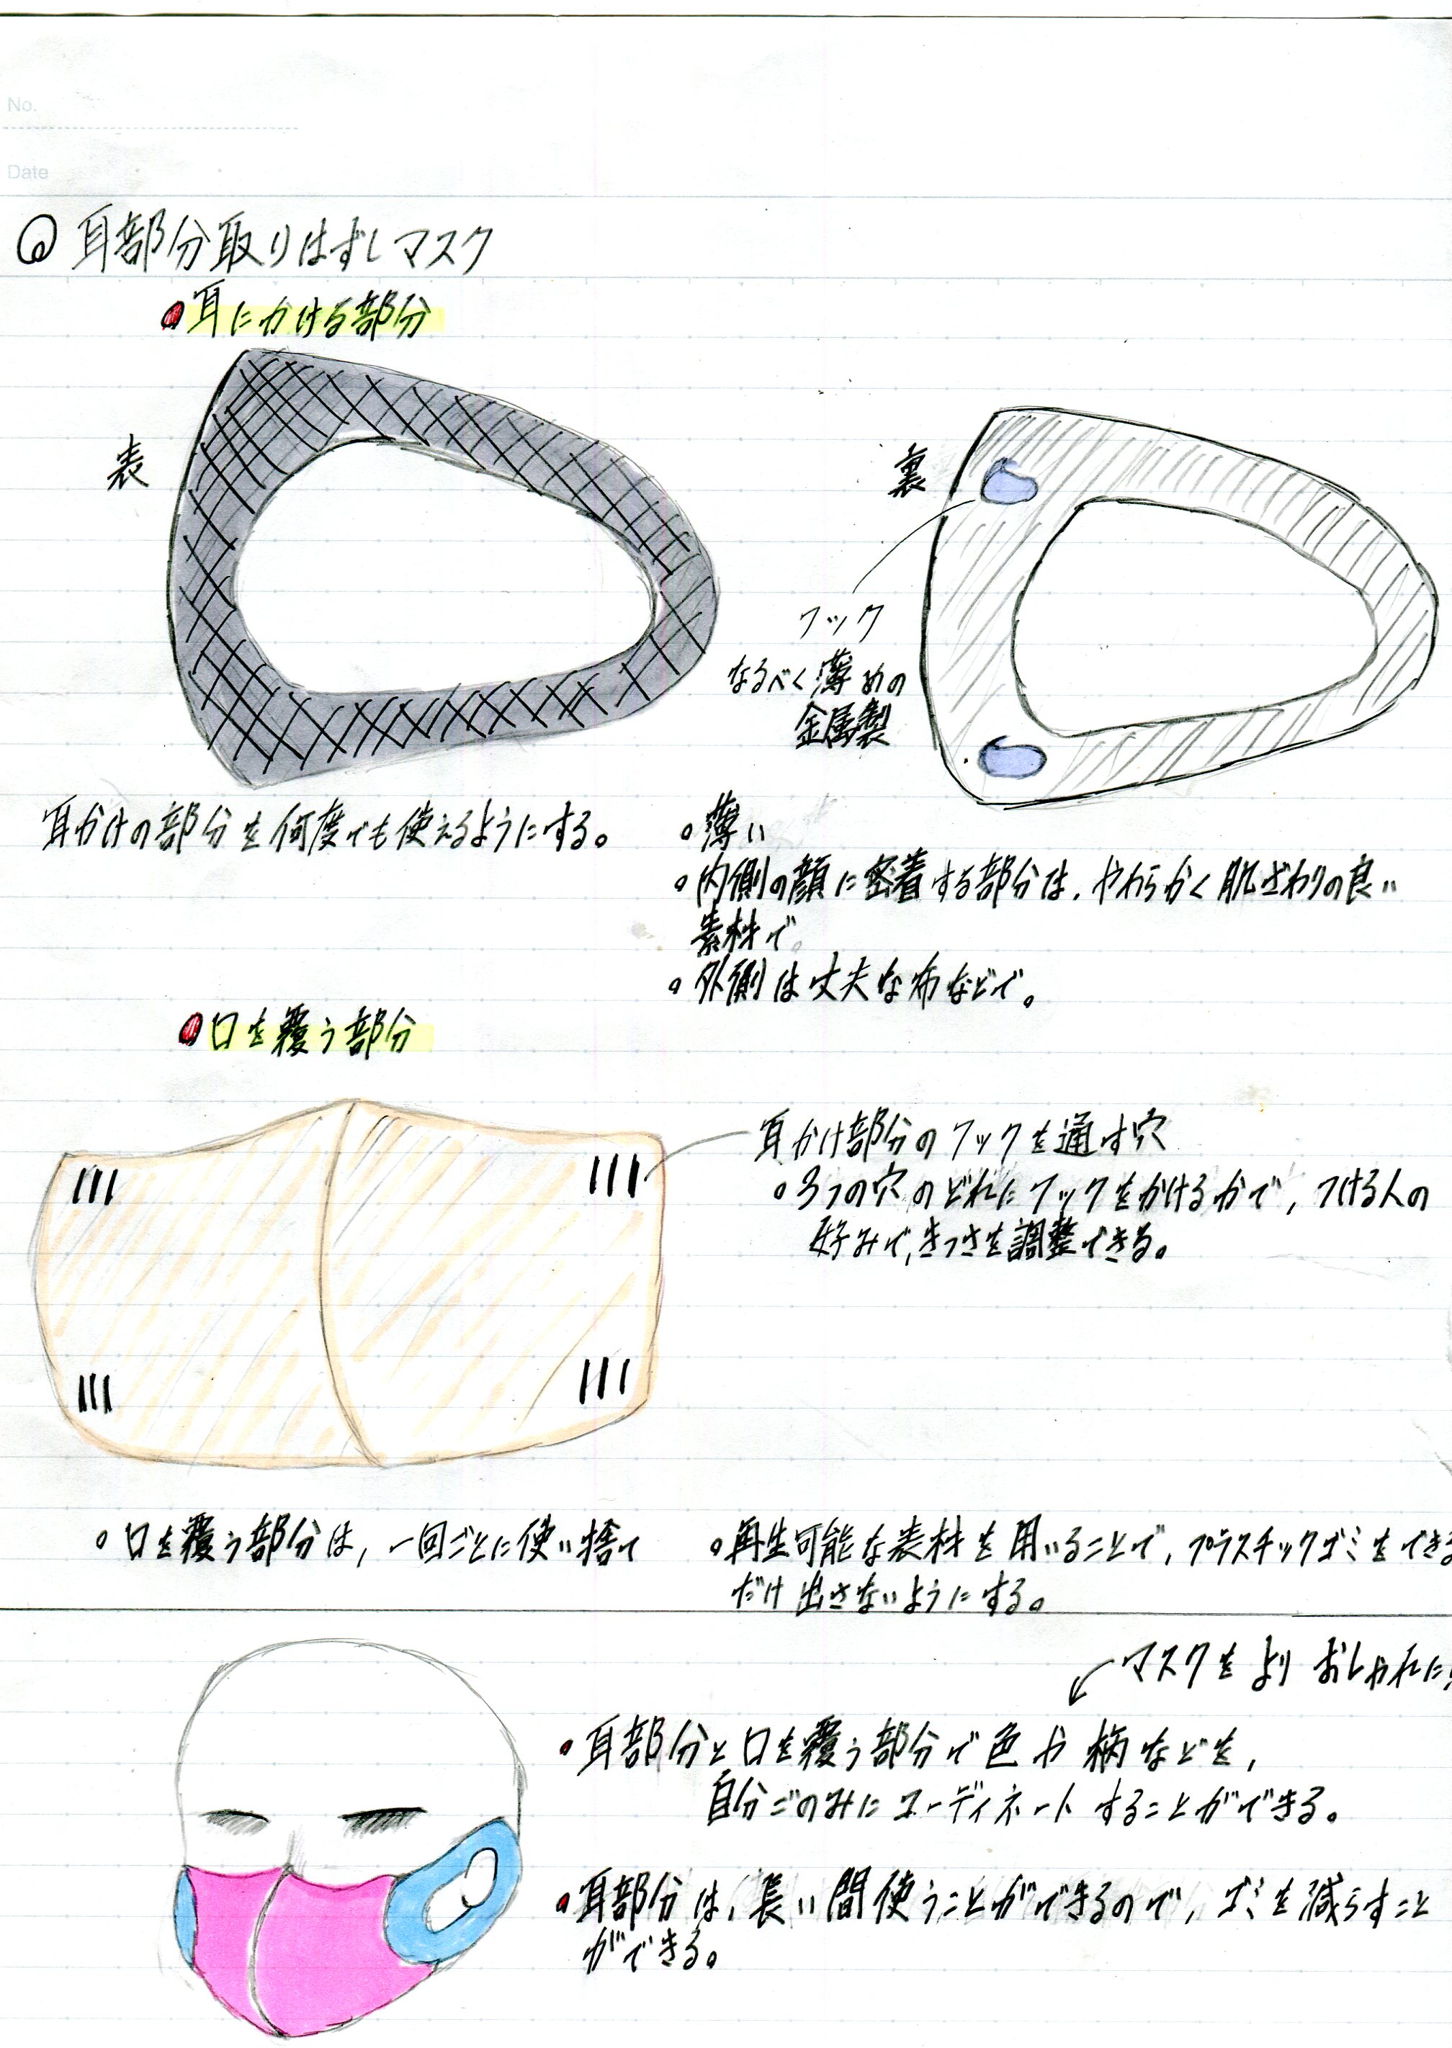 No.
Date
耳部分取りはずしマスク
耳にかける部分
表
裏
フック
なるべく薄めの
金属製
耳かけの部分を何度でも使えるようにする。
・薄い
・内側の顔に密着する部分は、やわらかく肌ざわりの良い
素材で。
・外側は丈夫な布などで。
口を覆う部分
耳かけ部分のフックを通す穴
・3つの穴のどれにフックをかけるかで、つける人の
好みで、きつさを調整できる。
・口を覆う部分は、一回ごとに使い捨て
・再生可能な素材を用いることで、プラスチックゴミをできる
だけ出さないようにする。
マスクをよりおしゃれに!
・耳部分と口を覆う部分で色や柄などを、
自分ごのみにコーディネートすることができる。
・耳部分は、長い間使うことができるので、ゴミを減らすこと
ができる。